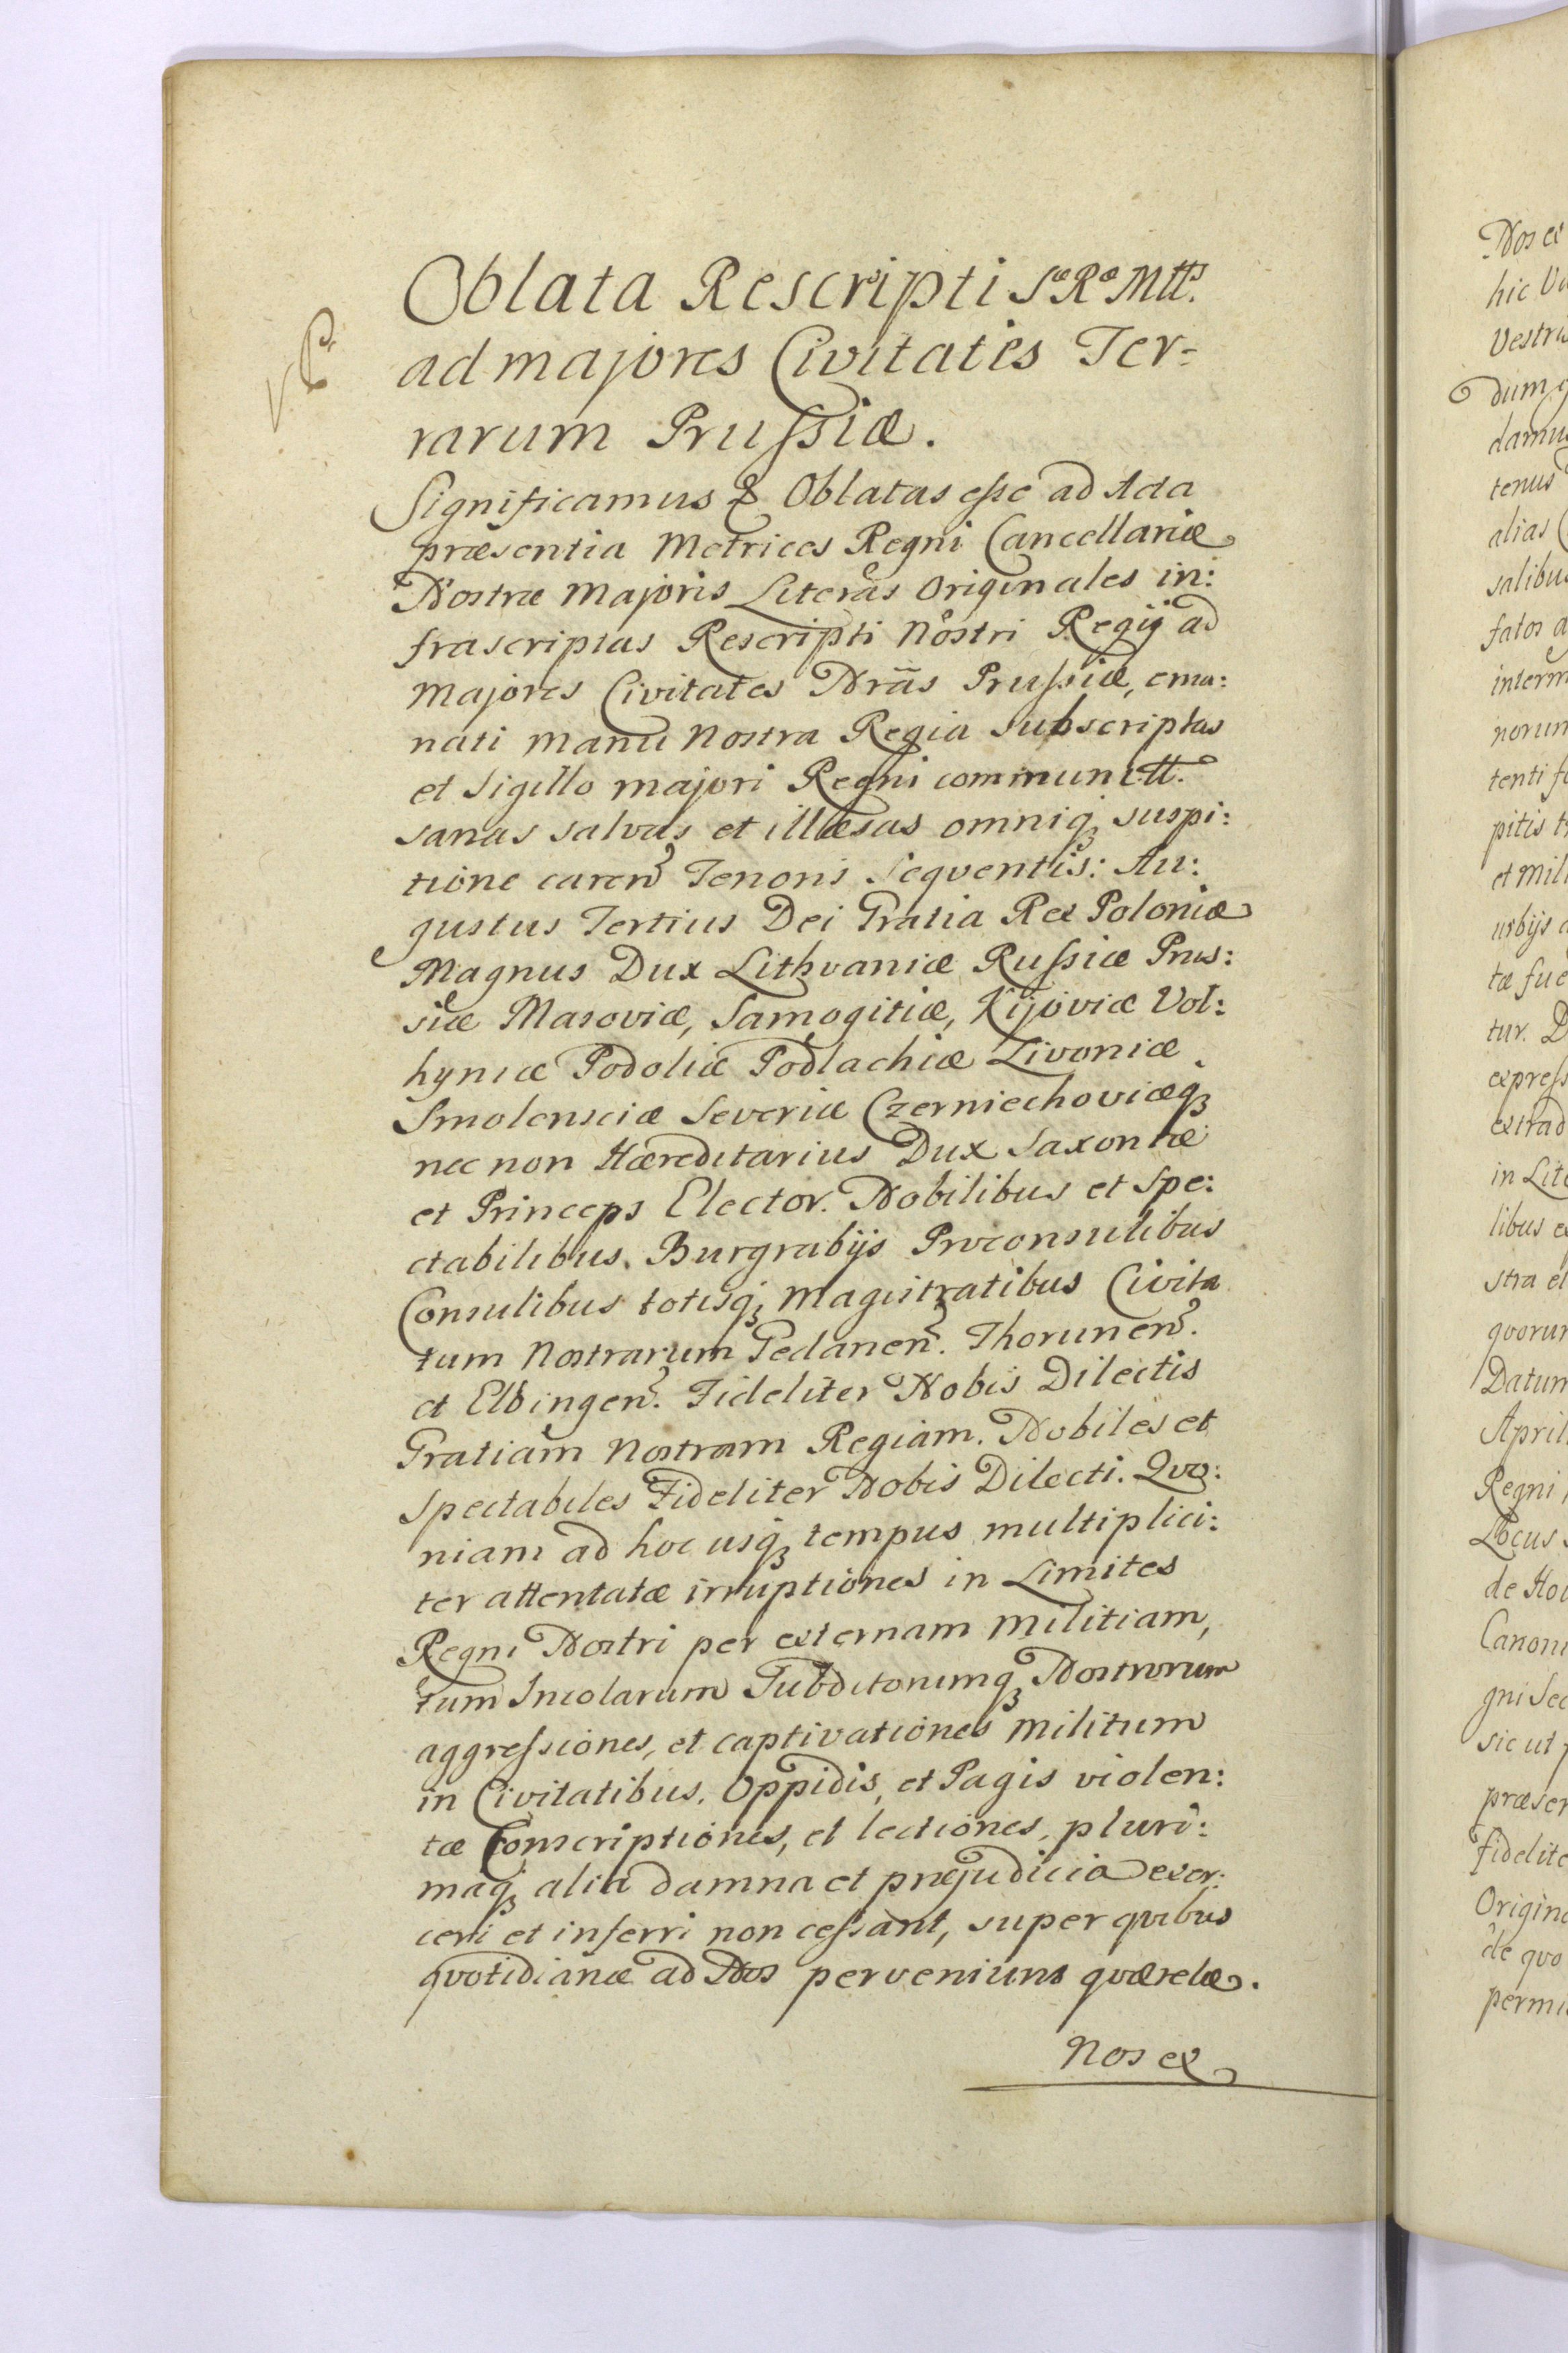 Oblata Rescripti Sæ Ræ Mttis
ad majores Civitates Ter-
rarum Prussiæ.
Significamus & Oblatas esse ad Acta
præsentia Metrices Regni Cancellariæ
Nostræ Majoris Literas Originales in:
frascriptas Rescripti Nostri Regij ad
Majores Civitates Nrãs Prussiæ, ema:
nati manu Nostra Regia subscriptas
et Sigillo majori Regni communitt.
sanas salvas et illæsas omniq; suspi:
tione caren Tenoris Sequentis: Au:
gustus Tertius Dei Gratia Rex Poloniæ
Magnus Dux Lithvaniæ Russiæ Prus:
siæ Masoviæ, Samogitiæ, Kijoviæ Vol:
hyniæ Podoliæ Podlachiæ Livoniæ
Smolensciæ Severiæ Czerniechoviæq;
nec non Hæreditarius Dux Saxoniæ
et Princeps Elector. Nobilibus et Spe:
ctabilibus. Burgrabijs Proconsulibus
Consulibus totisq; Magistratibus Civita
tum Nostrarum Gedanen. Thorunen.
et Elbingen. Fideliter Nobis Dilectis
Gratiam Nostram Regiam. Nobiles et
Spectabiles Fideliter Nobis Dilecti. Quo:
niam ad hoc usq; tempus multiplici:
ter attentatæ irruptiones in Limites
Regni Nostri per externam Militiam,
tum Incolarum Subditorumq; Nostrorum
aggressiones, et captivationes Militum
in Civitatibus. Oppidis, et Pagis violen:
tæ Conscriptiones, et lectiones, pluri:
maq; alia damna et præjudicia exer:
ceri et inferri non cessant, super quibus
quotidianæ ad Nos perveniunt quærelæ.
Nos ex
Nos ex
hic
dum
tenus
alias
fatos
tenti
pitis
et
tur.
in
libus
stra
Datum
Regni
Locus
de
sic ut
de quo